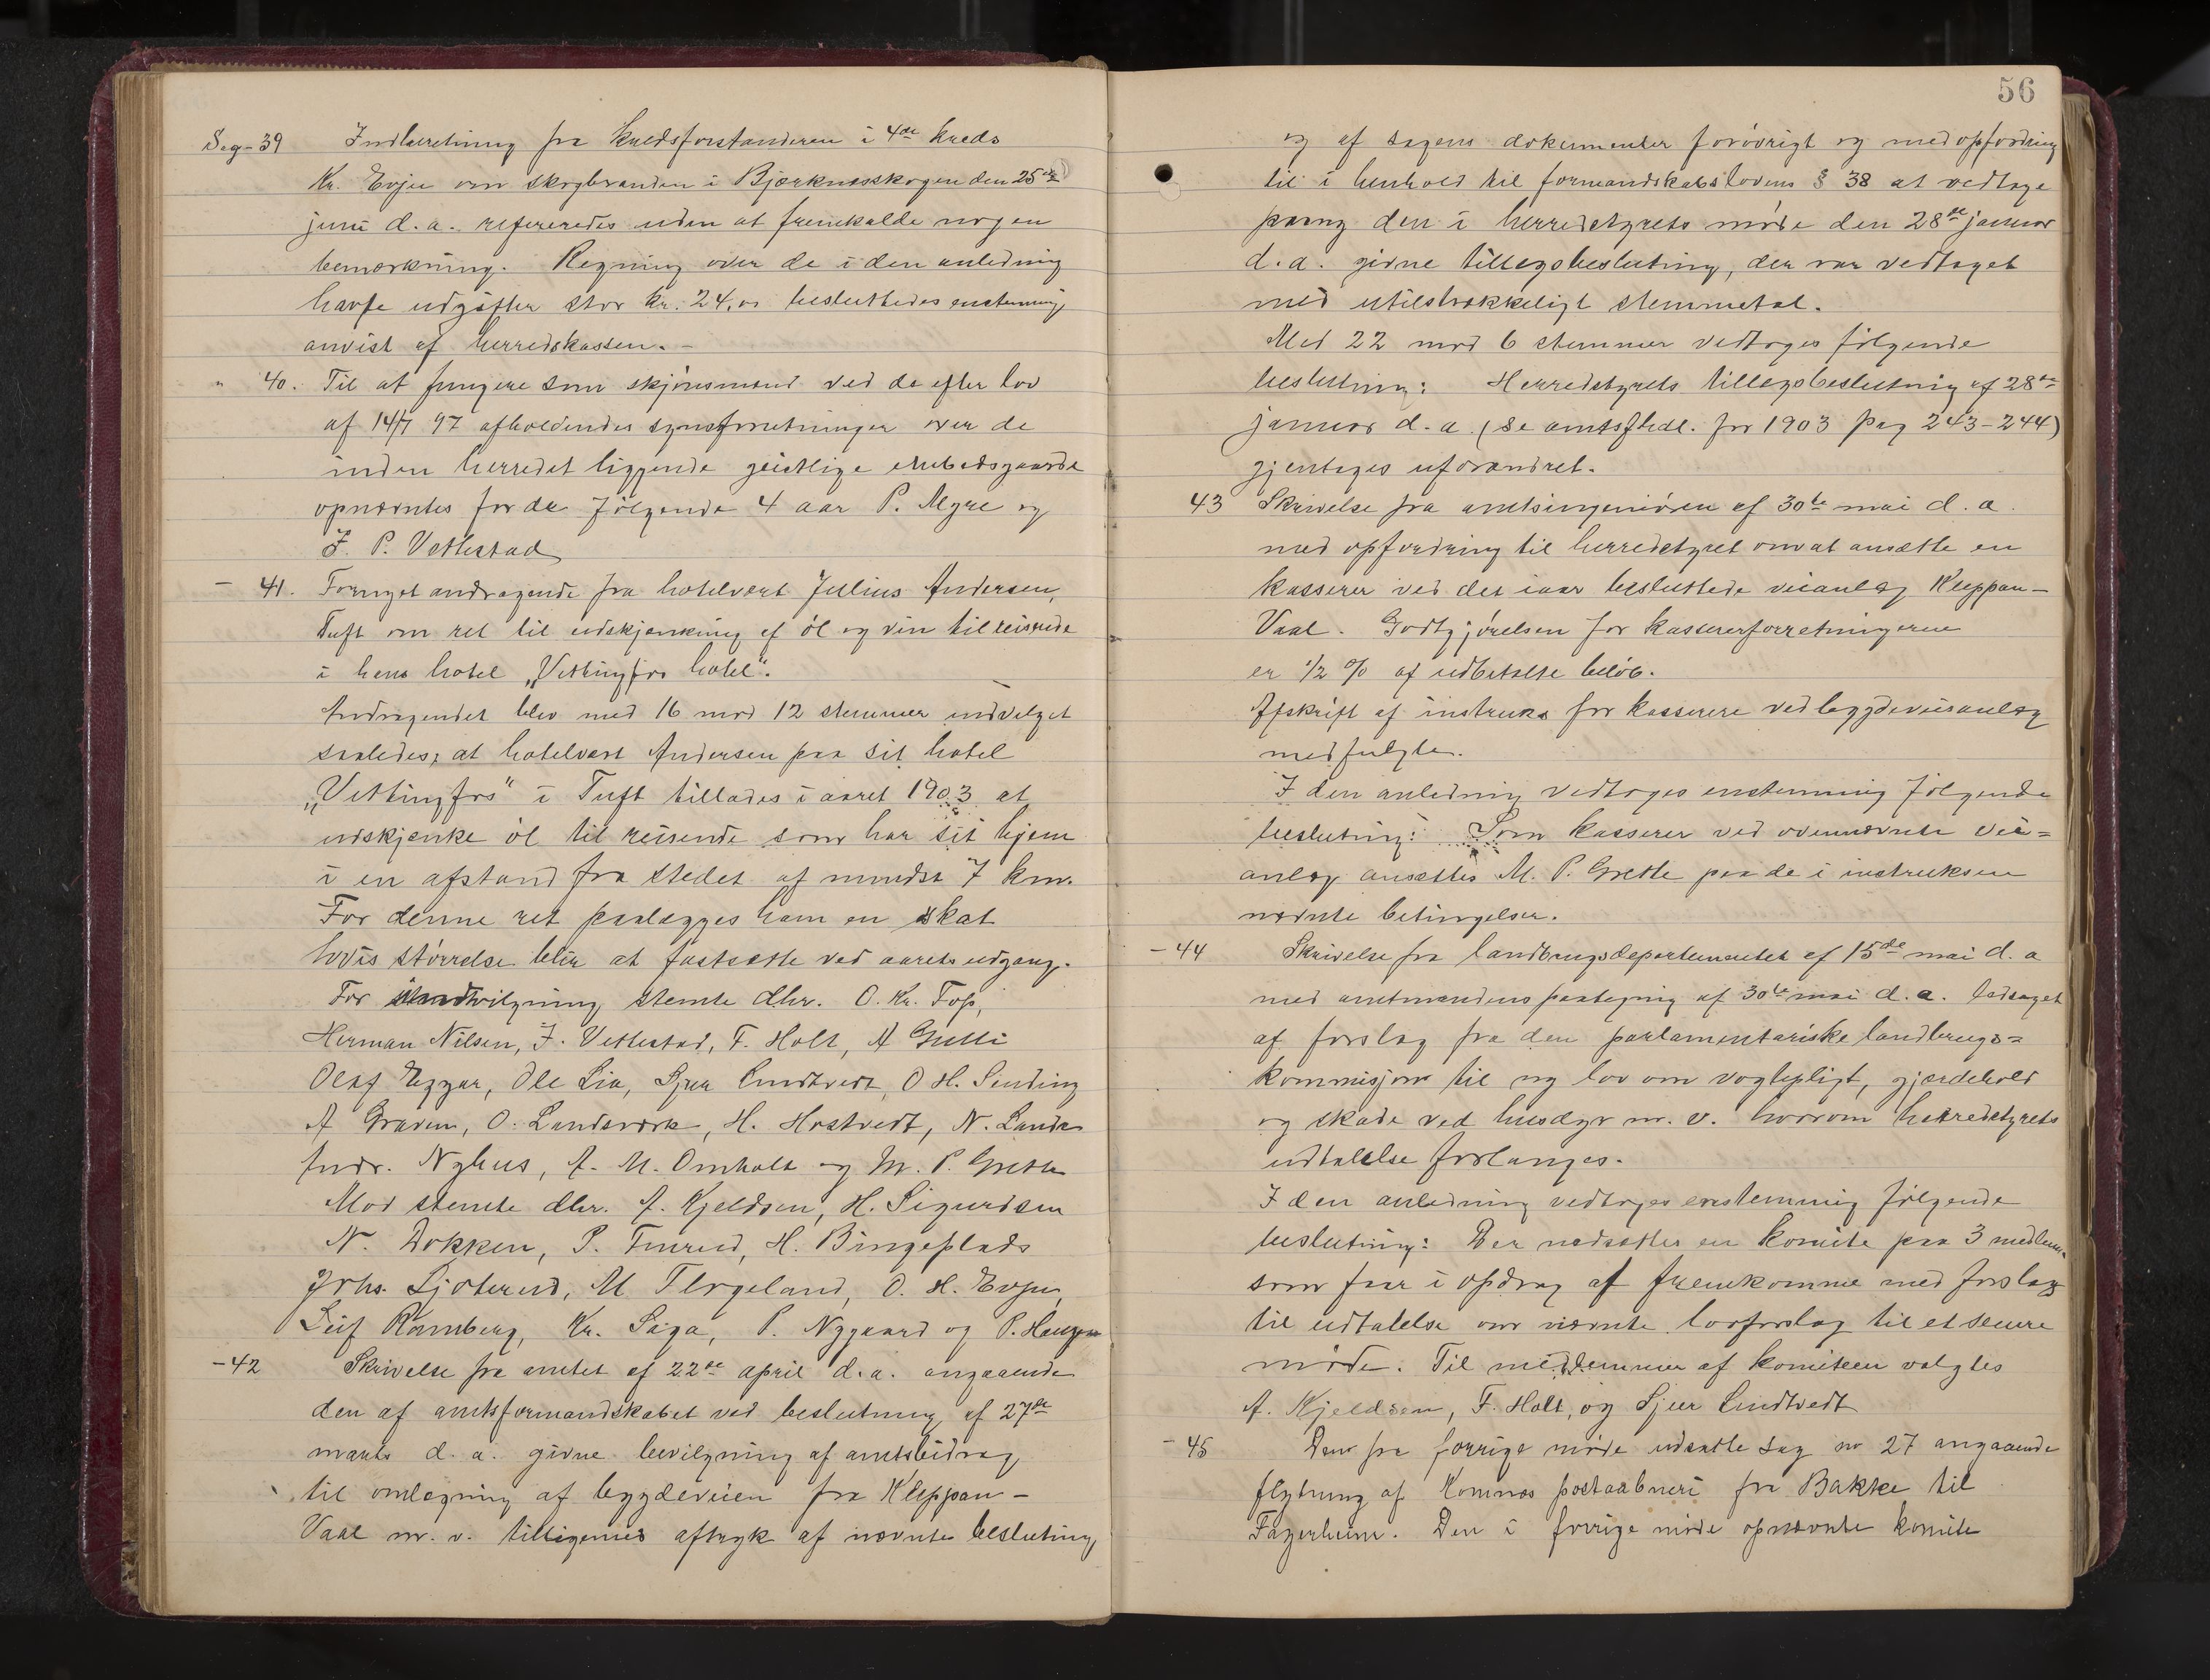 Sag-39 Indberetning fra kredsforstanderen i 4de kreds
Kr. Evju om skogbranden i Bjørknesskogen den 25de
juni d. a. refereredes uden at fremkalde nogen
bemærkning. Regning over de i den anledning
havte udgifter stor kr. 24,00 besluttedes enstemmig
anvist af herredskassen. -
" 40. Til at fungere som skjønsmænd ved de efter lov
af 14/7 97 afholdendes synsforretninger over de
inden herredet liggende geistlige embedsgaarde
opnævntes for de følgende 4 aar P. Myre og
J. P. Vettestad
- 41. Fornyet andragende fra hotelvert Julius Andersen,
Tuft om ret til udskjænkning af øl og vin til reisende
i hans hotel „Vittingfos hotel".
Andragendet blev med 16 mod 12 stemmer indvilget
saaledes, at hotelvert Andersen paa sit hotel
„Vittingfos" i Tuft tillades i aaret 1903 at
udskjenke øl til reisende som har sit hjem
i en afstand fra stedet af mindst 7 km.
For denne ret paalægges ham en skat
hvis størrelse blir at fastsætte ved aarets udgang.
For indvilgning stemte dhr. O. Kr. Foss,
Herman Nilsen, J. Vettestad, F. Holt, A Gulli
Olaf Eggar, Ole Lia, Sjur Lindtvedt, O. H. Sending
A Graven, O. Landsværk, H. Hostvedt, N. Lande
Andr. Nyhus, A. M. Omholt og M. P. Grette
Mod stemte dhr. A. Kjeldsen, H. Sigurdsen
N. Dokken, P. Tinrud, H. Bingeplads
Johs. Ljøterud, M Flogeland, O. H. Evju,
Leif Ramberg, Kr. Saga, P. Nygaard og P. Haugan
-42 Skrivelse fra amtet af 22de april d. a. angaaende
den af amtsformandskabet ved beslutning af 27de
marts d. a. givne bevilgning af amtsbidrag
til omlægning af bygdeveien fra Kleppan-
Vaal m. v. tilligemed aftryk af nævnte beslutning
56
og af sagens dokumenter forøvrigt og med opfordring
til i henhold til formandskabslovens § 38 at vedtage
paany den i herredstyrets møde den 28de januar
d. a. givne tillægsbeslutning, der var vedtaget
med utilstrækkeligt stemmetal.
Med 22 mod 6 stemmer vedtoges følgende
beslutning: Herredstyrets tillægsbeslutning af 28de
januar d. a. (se amtsfhdl. for 1903 pag 243-244)
gjentages uforandret.
43 Skrivelse fra amtsingeniøren af 30te mai d. a.
med opfordring til herredstyret om at ansætte en
kasserer ved det iaar besluttede veianlæg Kleppan-
Vaal. Godtgjørelsen for kassererforretningerne
er 1/2 % af udbetalte beløb.
Afskrift af instruks for kasserere ved bygdeveisanlæg
medfulgte.
I den anledning vedtoges enstemmig følgende
beslutning: Som kasserer ved ovennævnte vei=
anlæg ansættes M. P. Grette paa de i instruksen
nævnte betingelser.
- 44 Skrivelse fra landbrugsdepartementet af 15de mai d. a
med amtmandens paategning af 30te mai d. a. ledsaget
af forslag fra den parlamentariske landbrugs=
kommisjon til ny lov om vogtepligt, gjærdehold
og skade ved husdyr m. v. hvorom herredstyrets
udtalelse forlanges.
I den anledning vedtoges enstemmig følgende
beslutning: Der nedsættes en komite paa 3 medlem.
som faar i opdrag at fremkomme med forslag
til udtalelse om nævnte lovforslag til et senere
møde. Til medlemmer af komiteen valgtes
A. Kjeldsen, F. Holt, og Sjur Lindtvedt
- 45 Den fra forrige møde udsatte sag no 27 angaaende
flytning af Komnes postaabneri fra Bakke til
Fagerheim. Den i forrige møde opnævnte komite